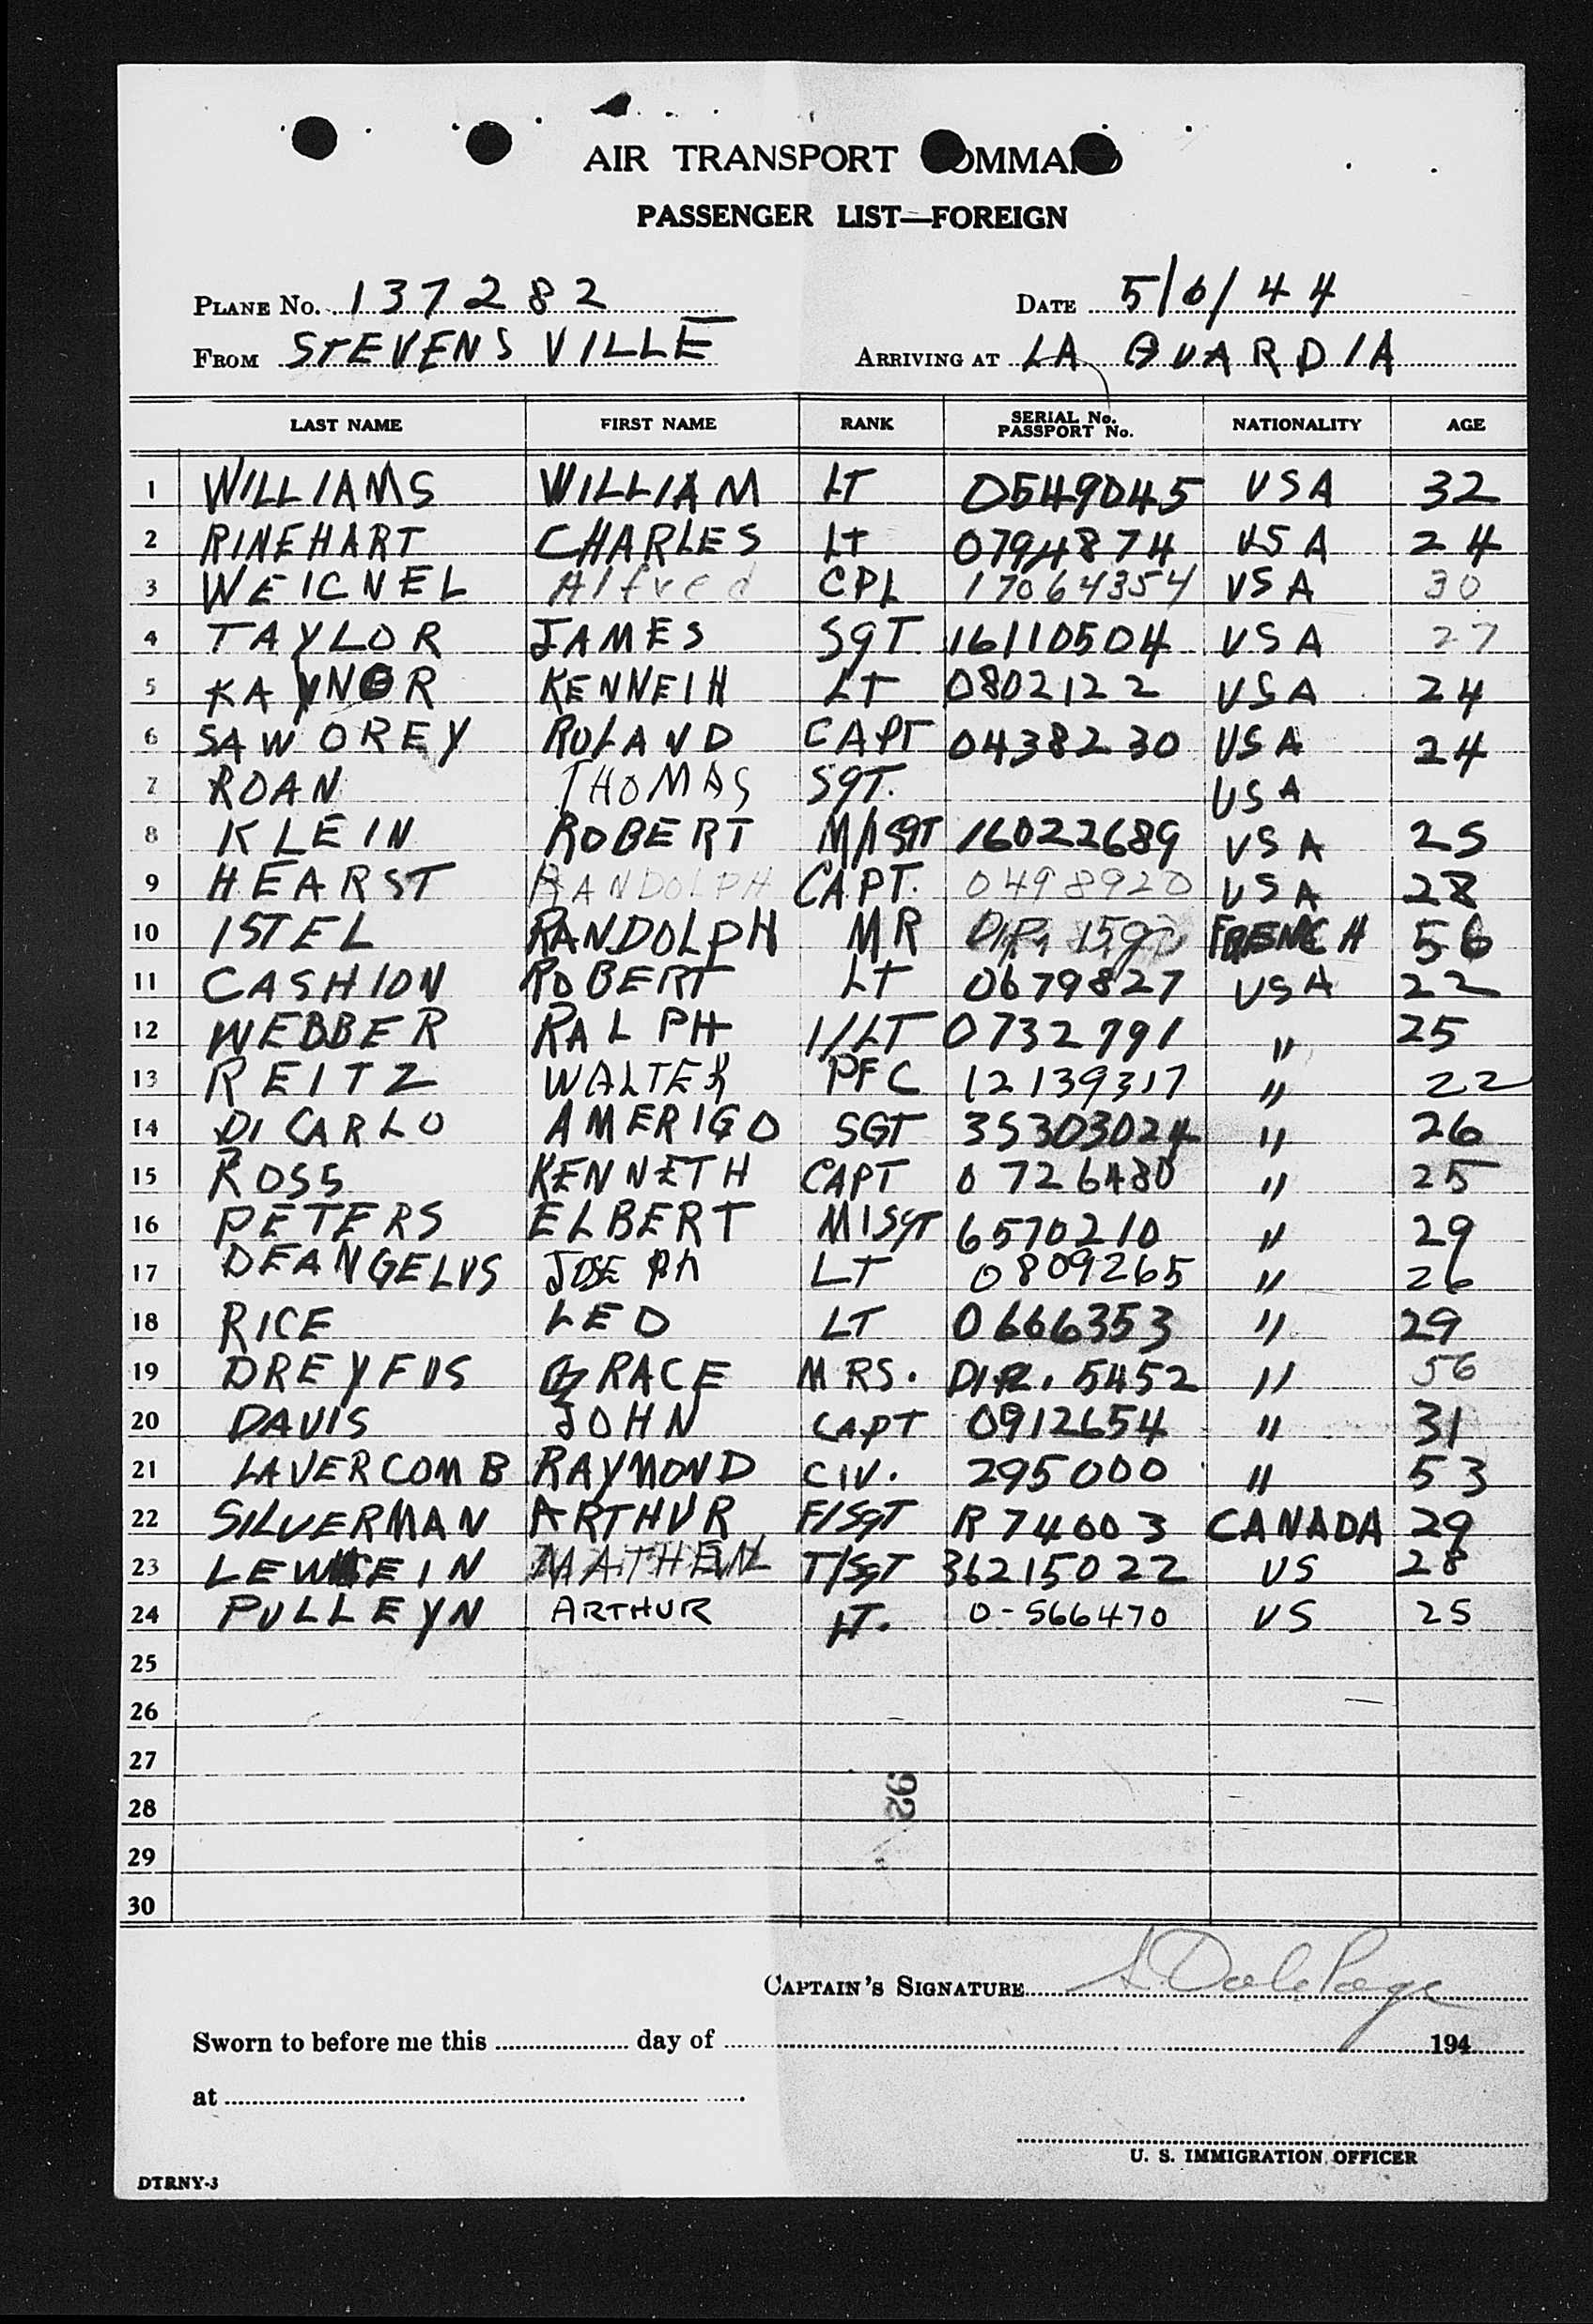 AIR TRANSPORT COMMAND
PASSENGER LIST—FOREIGN
PLANE No. 137282 DATE 5/6/44
FROM STEVENSVILLE ARRIVING AT LA GUARDIA
LAST NAME FIRST NAME RANK SERIAL No. PASSPORT No. NATIONALITY AGE
1 WILLIAMS WILLIAM LT 0549045 USA 32
2 RINEHART CHARLES LT 0794874 USA 24
3 WEICNEL Alfred CPL 17064354 USA 30
4 TAYLOR JAMES SGT 16110504 USA 27
5 KAYNOR KENNETH LT 0802122 USA 24
6 SAWOREY ROLAND CAPT 0438230 USA 24
7 ROAN THOMAS SGT. USA
8 KLEIN ROBERT M/SGT 16022689 USA 25
9 HEARST RANDOLPH CAPT. 0498920 USA 28
10 ISTEL RANDOLPH MR DIP. FRENCH 56
11 CASHION ROBERT LT 0679827 USA 22
12 WEBBER RALPH 1/LT 0732791 " 25
13 REITZ WALTER PFC 12139317 " 22
14 DI CARLO AMERIGO SGT 35303024 " 26
15 ROSS KENNETH CAPT 0726480 " 25
16 PETERS ELBERT M/SGT 6570210 " 29
17 DEANGELUS JOSEPH LT 0809265 " 26
18 RICE LEO LT 0666353 " 29
19 DREYFUS GRACE MRS. DIP. 5452 " 56
20 DAVIS JOHN CAPT 0912654 " 31
21 LAVERCOMB RAYMOND CIV. 295000 " 53
22 SILVERMAN ARTHUR F/SGT R74003 CANADA 29
23 T/SGT 36215022 US 28
24 PULLEYN ARTHUR LT. 0-566470 US 25
25
26
27
28
29
30
92
CAPTAIN'S SIGNATURE S Dale Page
Sworn to before me this day of 194
at
U. S. IMMIGRATION OFFICER
DTRNY-3